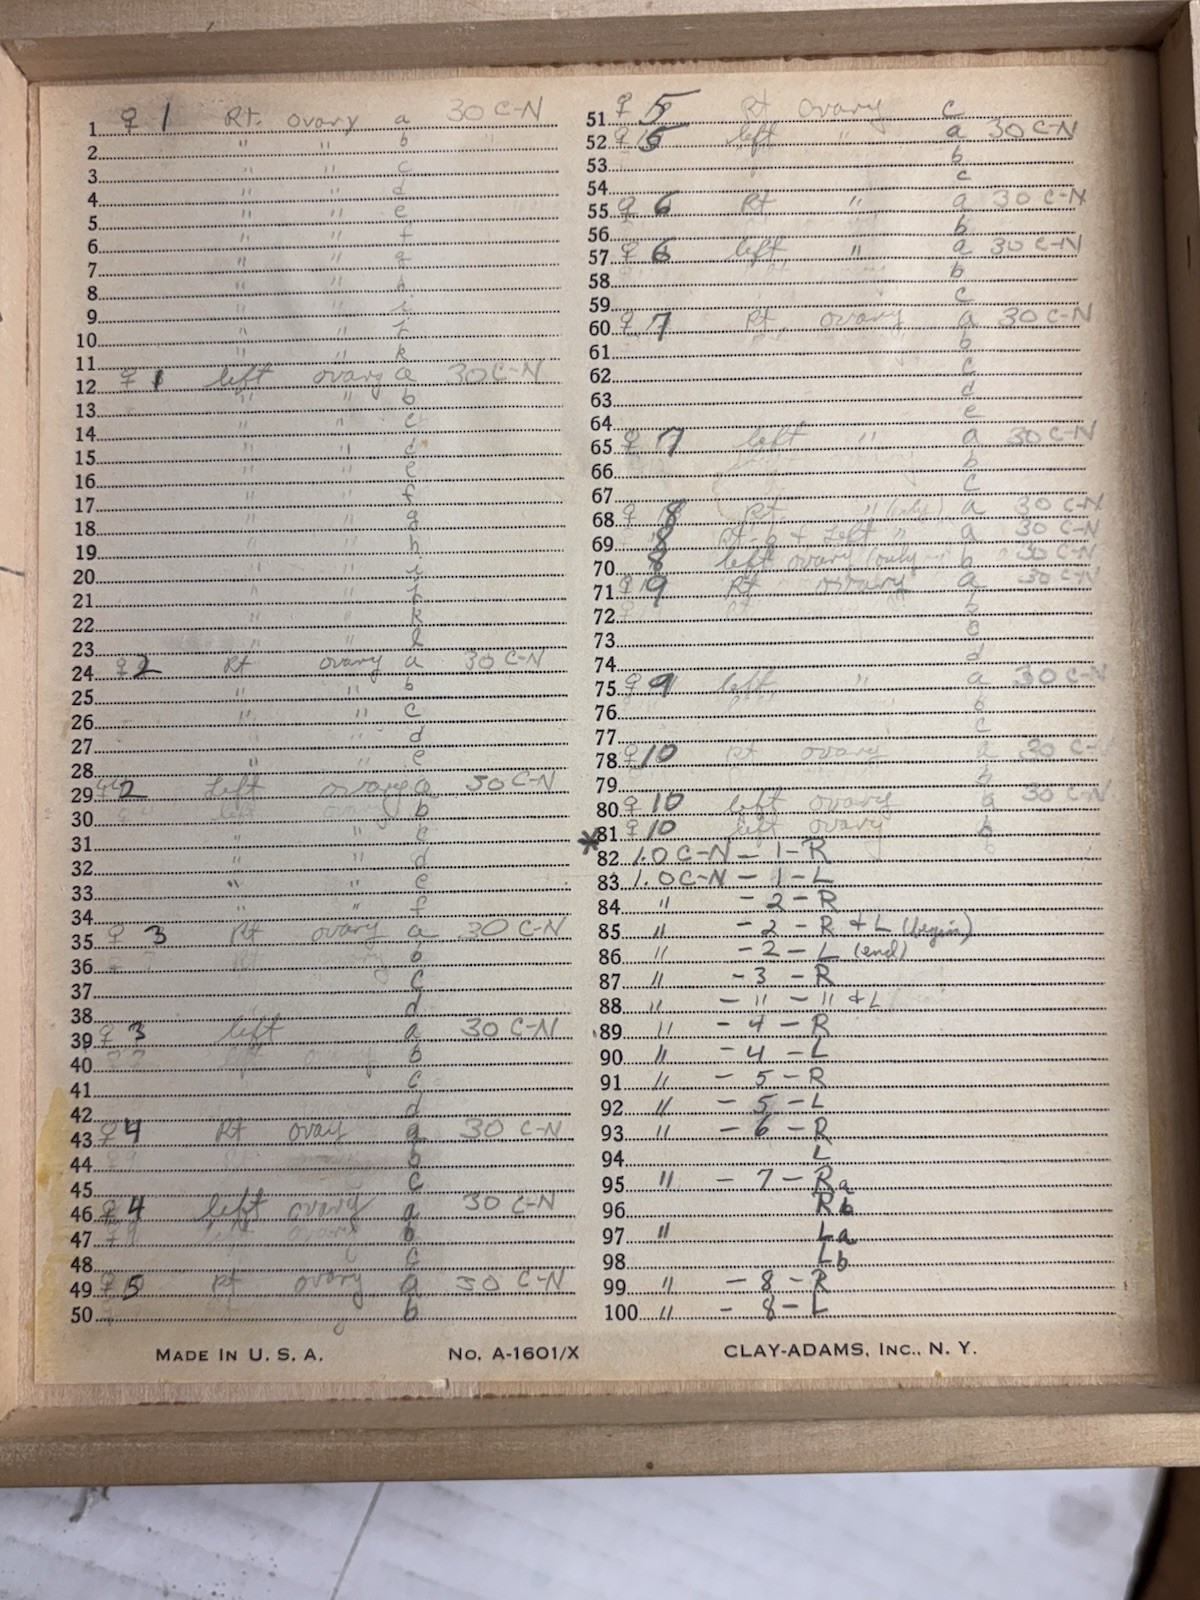 1 ♀ 1 Rt. ovary a 30 C-N
2 " " b "
3 " " c
4 " " d
5 " " e
6 " " f
7 " " g
8 " " h
9 " " i
10 " " j
11 " " k
12 ♀ 1 left ovary a 30 C-N
13 " " b
14 " " c
15 " " d
16 " " e
17 " " f
18 " " g
19 " " h
20 " " i
21 " " j
22 " " k
23 " " l
24 ♀ 2 Rt ovary a 30 C-N
25 " " b
26 " " c
27 " " d
28 " " e
29 ♀ 2 Left ovary a 30 C-N
30 b
31 " " c
32 " " d
33 " " e
34 " " f
35 ♀ 3 Rt ovary a 30 C-N
36 b
37 c
38 d
39 ♀ 3 left a 30 C-N
40 b
41 c
42 d
43 ♀ 4 Rt ovary a 30 C-N
44 b
45 c
46 ♀ 4 left ovary a 30 C-N
47 b
48 c
49 ♀ 5 Rt ovary a 30 C-N
50 b
51 ♀ 5 Rt ovary c
52 ♀ 5 left " a 30 C-N
53 b
54 c
55 ♀ 6 Rt " a 30 C-N
56 b
57 ♀ 6 left " a 30 C-N
58 b
59 c
60 ♀ 7 Rt. ovary a 30 C-N
61 b
62 c
63 d
64 e
65 ♀ 7 left " a 30 C-N
66 b
67 c
68 ♀ 8 Rt " (only) a 30 C-N
69 8 Rt-b & Left " a 30 C-N
70 8 left ovary (only) b 30 C-N
71 ♀ 9 Rt ovary a 30 C-N
72 b
73 c
74 d
75 ♀ 9 left, " a 30 C-N
76 b
77 c
78 ♀ 10 Rt ovary a 30 C-N
79 b
80 ♀ 10 left ovary a 30 C-N
81 ♀ 10 left ovary b
* 82 1.0 C-N - 1-R
83 1.0 C-N - 1-L
84 " - 2 - R
85 " - 2 - R & L (begin)
86 " - 2 - L (end)
87 " - 3 - R
88 " - " - " & L
89 " - 4 - R
90 " - 4 - L
91 " - 5 - R
92 " - 5 - L
93 " - 6 - R
94 L
95 " - 7 - Ra
96 Rb
97 " La
98 Lb
99 " - 8 - R
100 " - 8 - L
MADE IN U. S. A. No. A-1601/X CLAY-ADAMS, INC., N. Y.